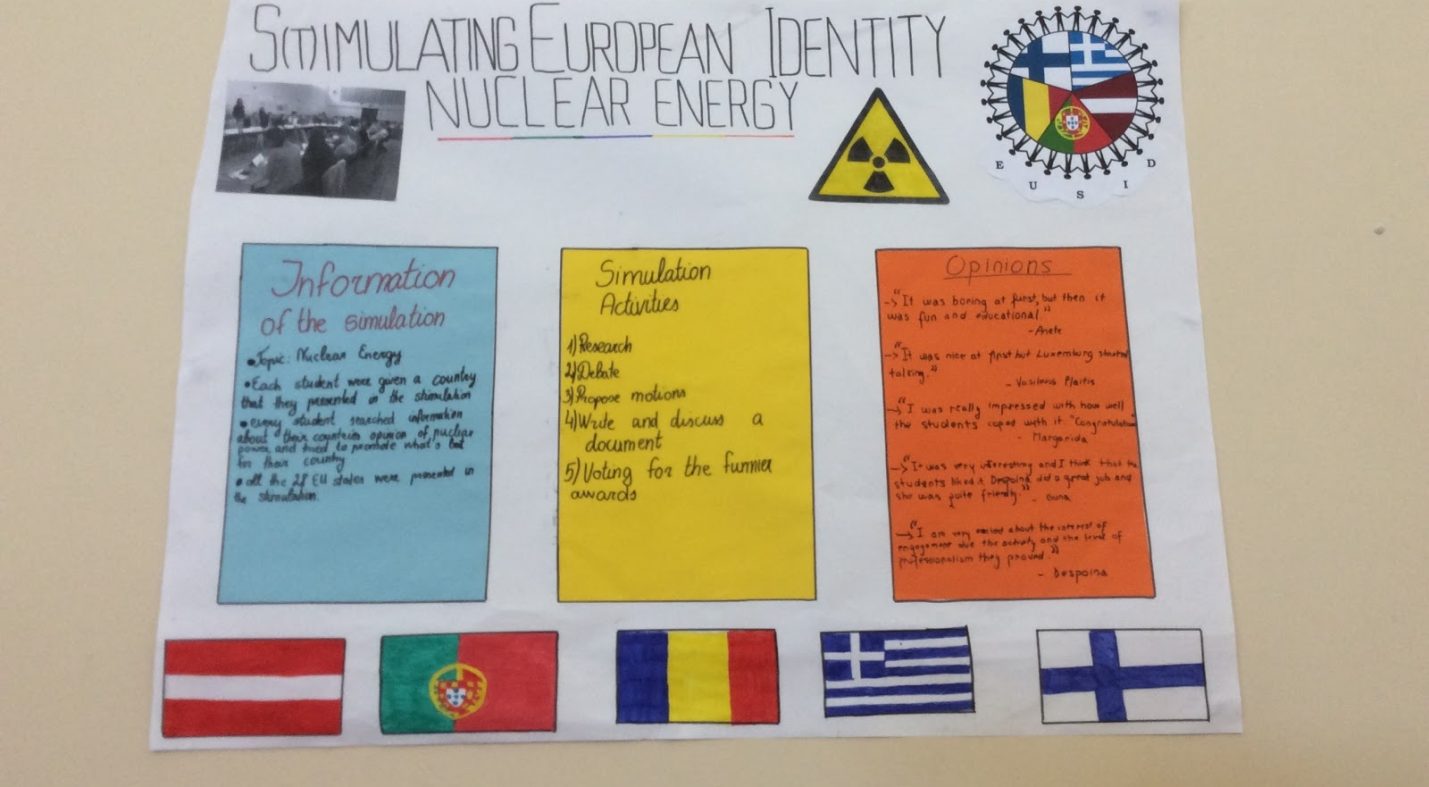 S(T)IMULATING EUROPEAN IDENTITY
NUCLEAR ENERGY
E U S I D
Information
of the simulation
• Topic: Nuclear Energy
• Each student were given a country
that they presented in the stimulation
• every student searched information
about their countries opinion of nuclear
power and tried to promote what's best
for their country
• all the 28 EU states were presented in
the stimulation.
Simulation
Activities
1) Research
2) Debate
3) Propose motions
4) Write and discuss a
document
5) Voting for the funnier
awards
Opinions
→ "It was boring at first, but then it
was fun and educational."
- Anete
→ "It was nice at first but Luxemburg started
talking."
- Vasileios Plaitis
→ "I was really impressed with how well
the students coped with it. "Congratulation
- Margarida
→ "It was very interesting and I think that the
students liked it. Despoina did a great job and
she was quite friendly." - Guna
→ "I am very about the interest of
engagement due the activity and the level of
professionalism they proved."
- Despoina